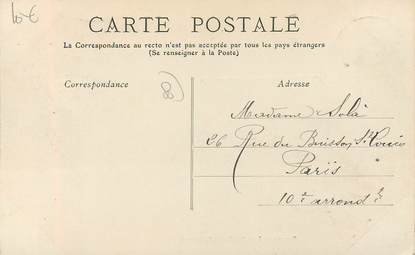 10€
CARTE POSTALE
La Correspondance au recto n'est pas acceptée par tous les pays étrangers
(Se renseigner à la Poste)
Correspondance
Adresse
Madame Solà
26 Rue du Buisson St Louis
Paris
10e arrondt